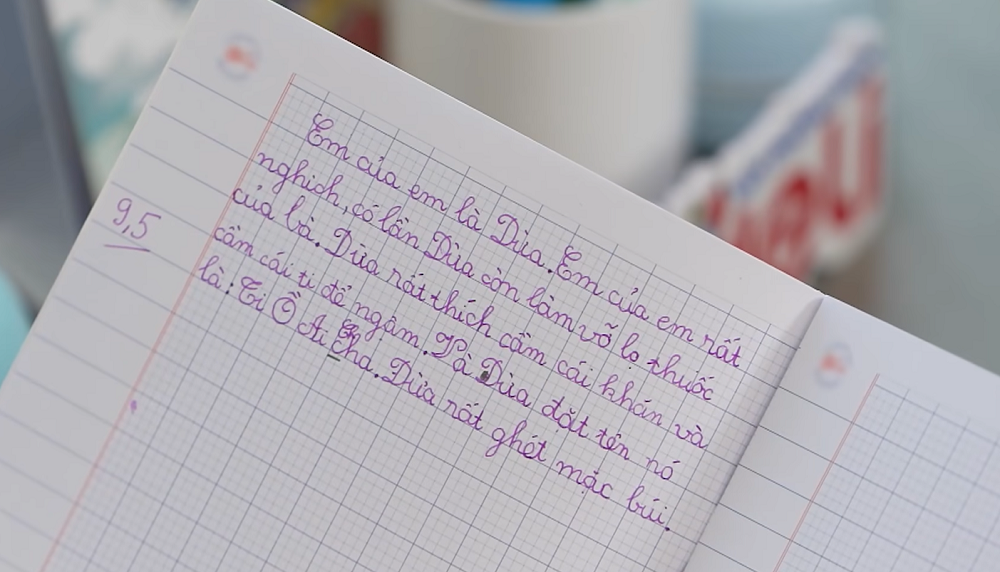 Em của em là Dừa. Em của em rất
nghịch, có lần Dừa còn làm vỡ lọ thuốc
của bà. Dừa rất thích cầm cái khăn và
cầm cái ti để ngậm. Và Dừa đặt tên nó
là: Ti Ồ Ai Cha. Dừa rất ghét mặc búi.
9,5